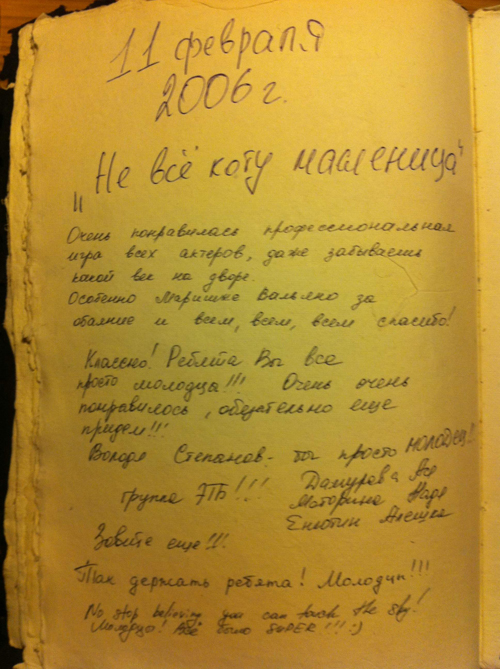 11 февраля
2006 г.
"Не всё коту масленица"
Очень понравилась профессиональная
игра всех актеров, даже забываешь
какой век на дворе.
Особенно Маришке за
обаяние и всем, всем, всем спасибо!
Классно! Ребята Вы все
просто молодца!!! Очень очень
понравилось, обязательно еще
придем!!!
Володя Степанов - ты просто молодец!!
группа ЭПБ!!! Ася
Маторина Надя
Енютин Алешка
Зовите еще!!!
Так держать ребята! Молодцы!!!
No stop believing you can touch the sky!
Молодца! Все было SUPER!!! :)